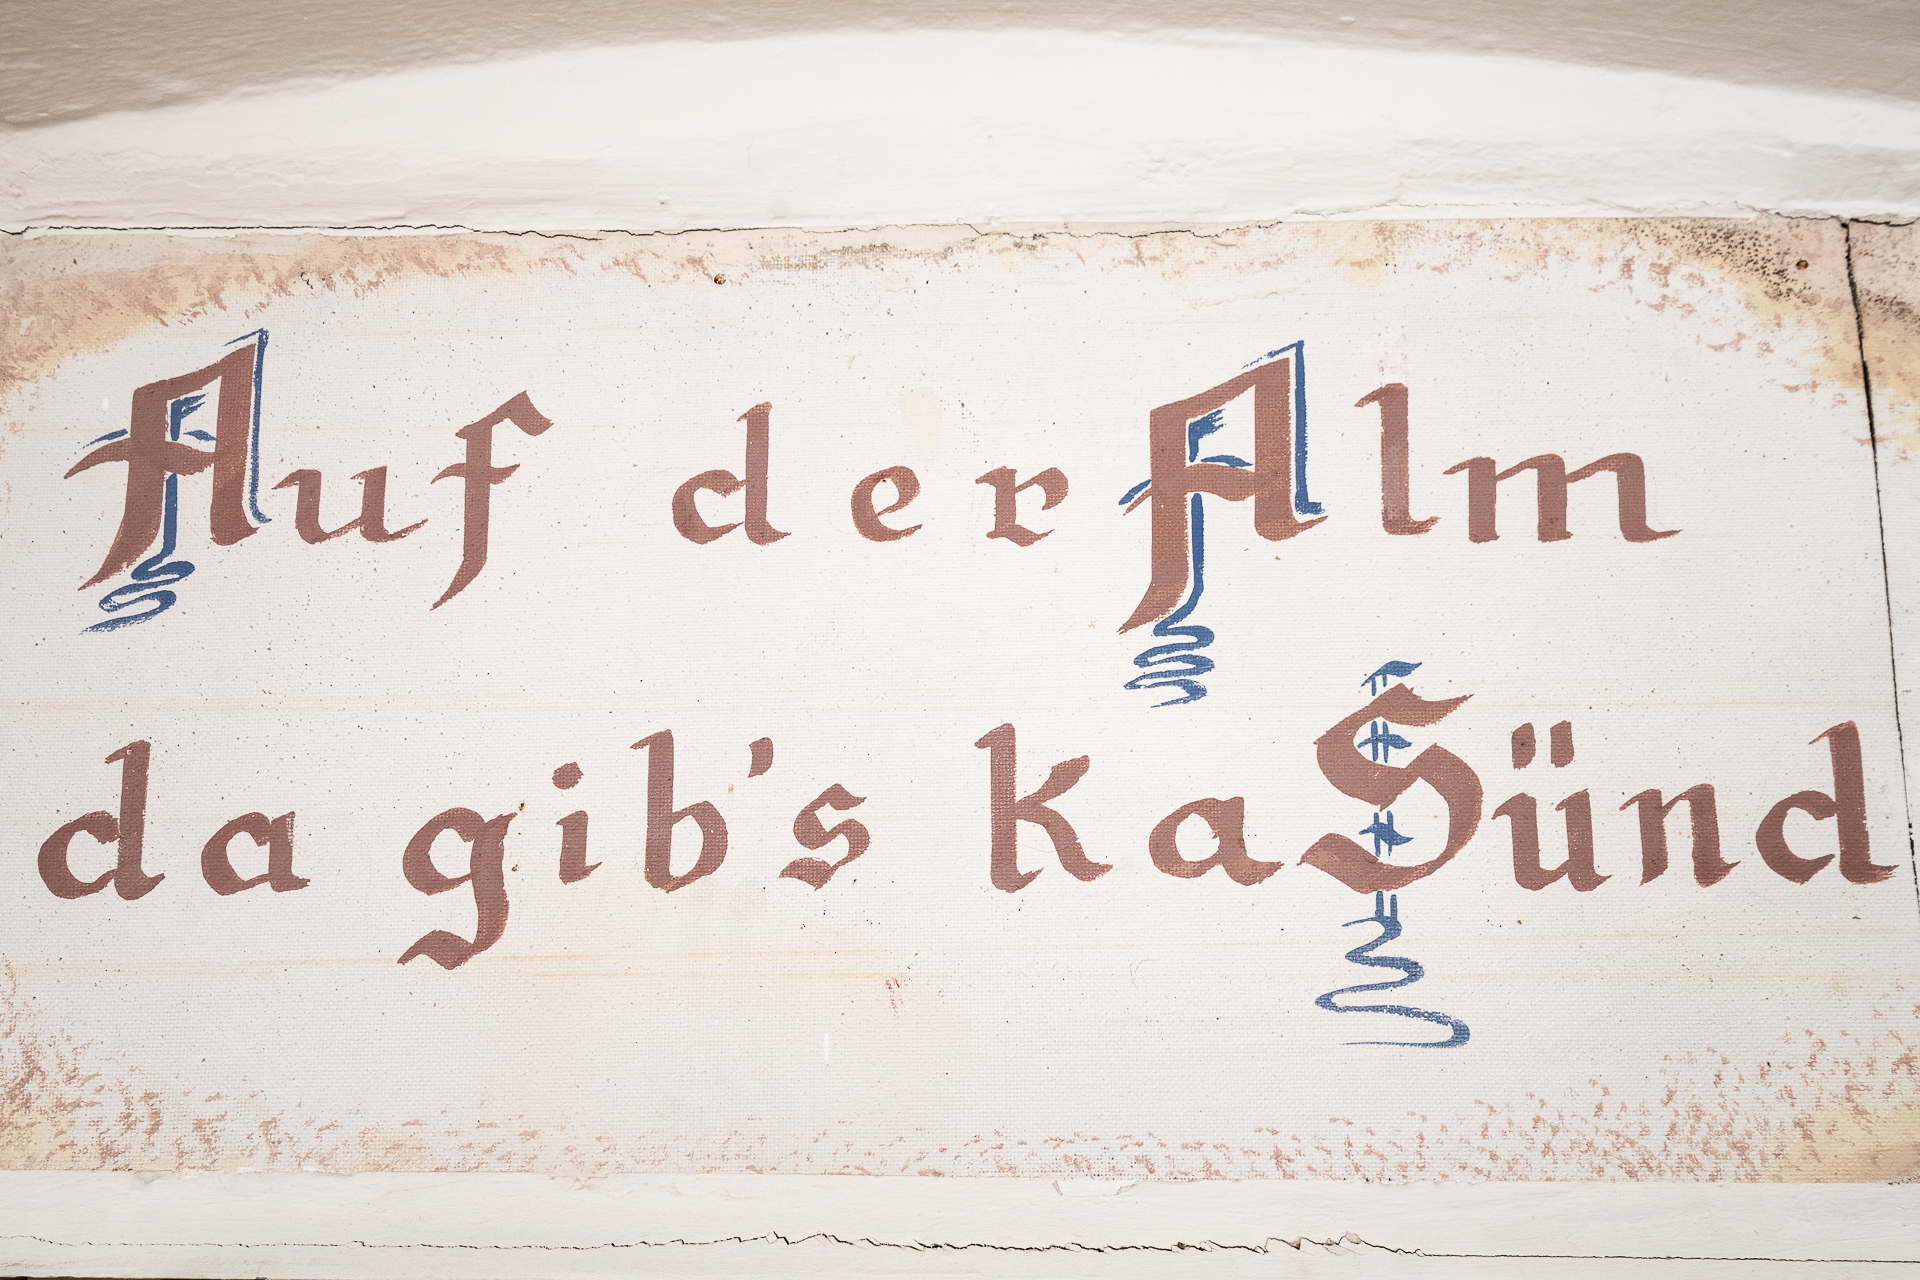 Auf der Alm
da gib's ka Sünd